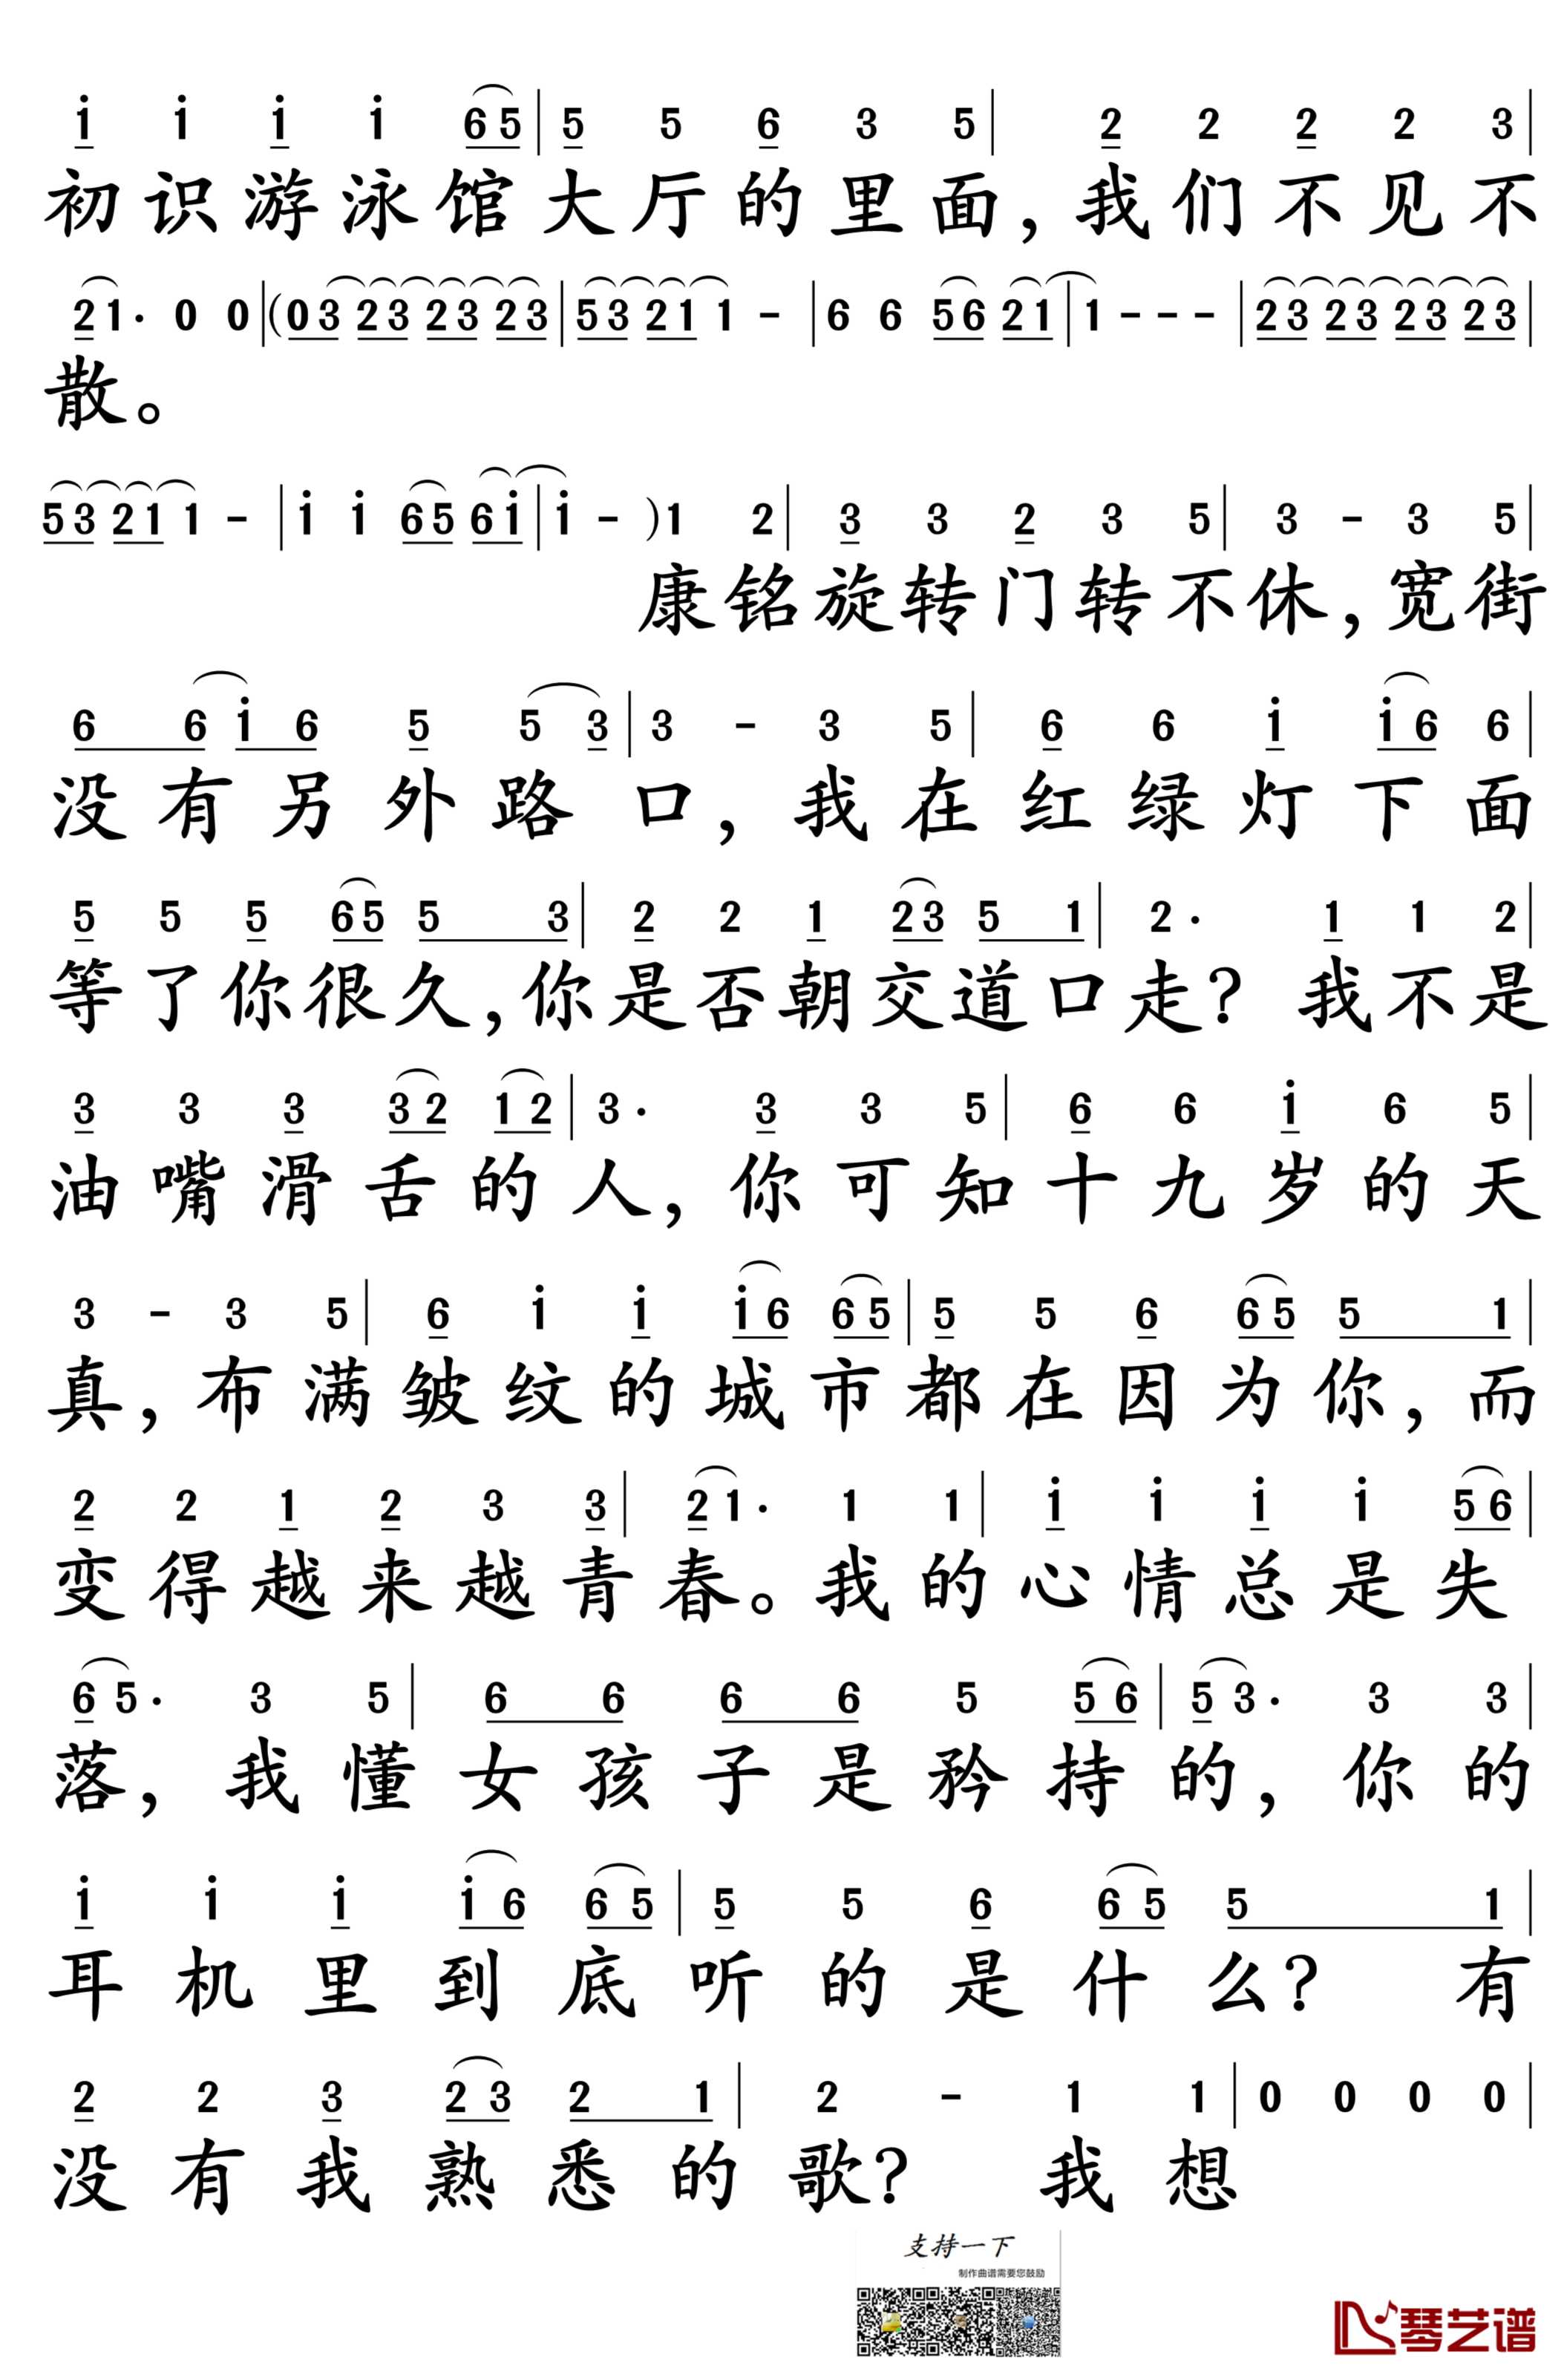 i i i i 65 | 5 5 6 3 5 | 2 2 2 2 3 |
初识游泳馆大厅的里面，我们不见不
21· 0 0 | (03 23 23 23 | 53 21 1 - | 6 6 56 21 | 1 - - - | 23 23 23 23 |
散。
53 21 1 - | i i 65 6i | i - ) 1 2 | 3 3 2 3 5 | 3 - 3 5 |
康铭旋转门转不休，宽街
6 6 i 6 5 5 3 | 3 - 3 5 | 6 6 i i6 6 |
没有另外路口，我在红绿灯下面
5 5 5 65 5 3 | 2 2 1 23 5 1 | 2· 1 1 2 |
等了你很久，你是否朝交道口走？我不是
3 3 3 32 12 | 3· 3 3 5 | 6 6 i 6 5 |
油嘴滑舌的人，你可知十九岁的天
3 - 3 5 | 6 i i i6 65 | 5 5 6 65 5 1 |
真，布满皱纹的城市都在因为你，而
2 2 1 2 3 3 | 21· 1 1 | i i i i 56 |
变得越来越青春。我的心情总是失
65· 3 5 | 6 6 6 6 5 56 | 53· 3 3 |
落，我懂女孩子是矜持的，你的
i i i i6 65 | 5 5 6 65 5 1 |
耳机里到底听的是什么？有
2 2 3 23 2 1 | 2 - 1 1 | 0 0 0 0 |
没有我熟悉的歌？我想
支持一下
制作曲谱需要您鼓励
琴艺谱